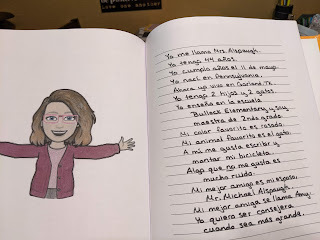 Yo me llamo Mrs. Alspaugh.
Yo tengo 44 años.
Yo cumplo años el 11 de mayo.
Yo nací en Pennsylvania.
Ahora yo vivo en Garland, Tx
Yo tengo 2 hijos y 2 gatos.
Yo enseño en la escuela
Bullock Elementary y soy
maestra de 2ndo grado
Mi color favorito es rosado.
Mi animal favorito es el gato.
A mí me gusta escribir y
montar mi bicicleta.
Algo que no me gusta es
mucho ruido.
Mi mejor amigo es mi esposo,
Mr. Michael Alspaugh.
Mi mejor amiga se llama Amy.
Yo quiero ser consejera
cuando sea más grande.